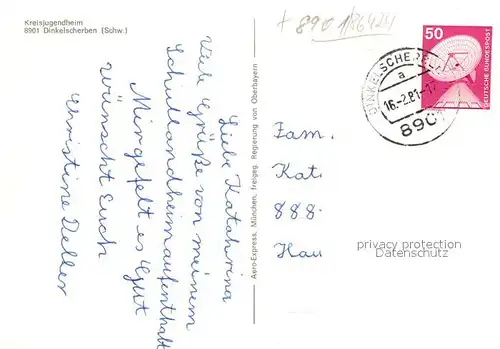 Kreisjugendheim
8901 Dinkelscherben (Schw.)
+ 890 1/86424
50
DEUTSCHE BUNDESPOST
DINKELSCHERBEN
a
16.-2.81-17
8901
Liebe Katahrina
Viele Grüße von meinem
Schullandheimaufenthalt
Mirgefelt es Gut
wünscht Euch
Christine Deller
Aero-Express, München, freigeg. Regierung von Oberbayern
Fam.
Kat
888
Hau
privacy protection
Datenschutz